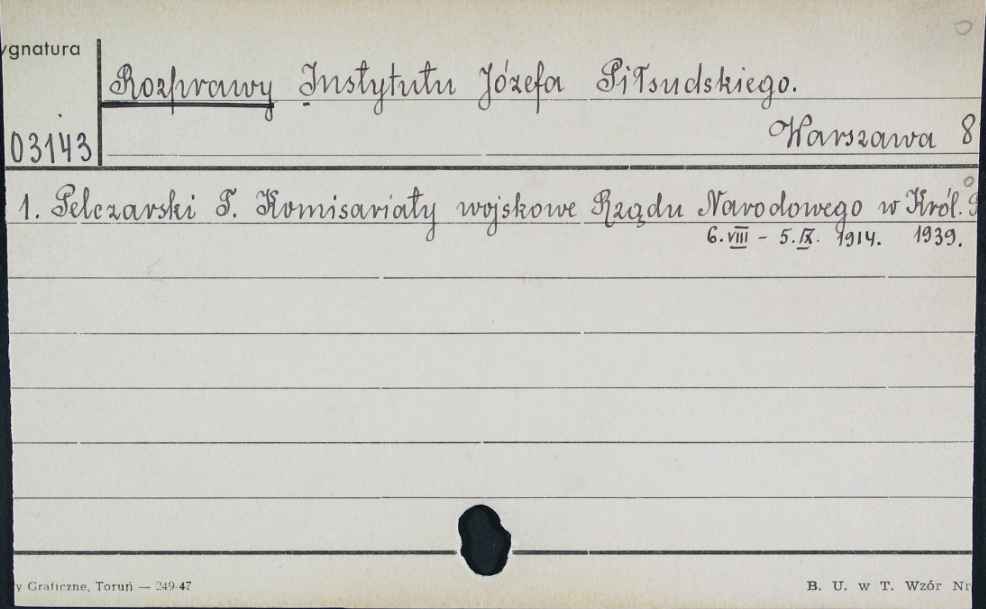 ygnatura
Rozprawy Instytutu Józefa Piłsudskiego.
03143
Warszawa 8°
1. Pelczarski T. Komisariaty wojskowe Rządu Narodowego w Król. P
6.VIII - 5.IX. 1914. 1939.
y Graficzne, Toruń — 249-47
B. U. w T. Wzór Nr